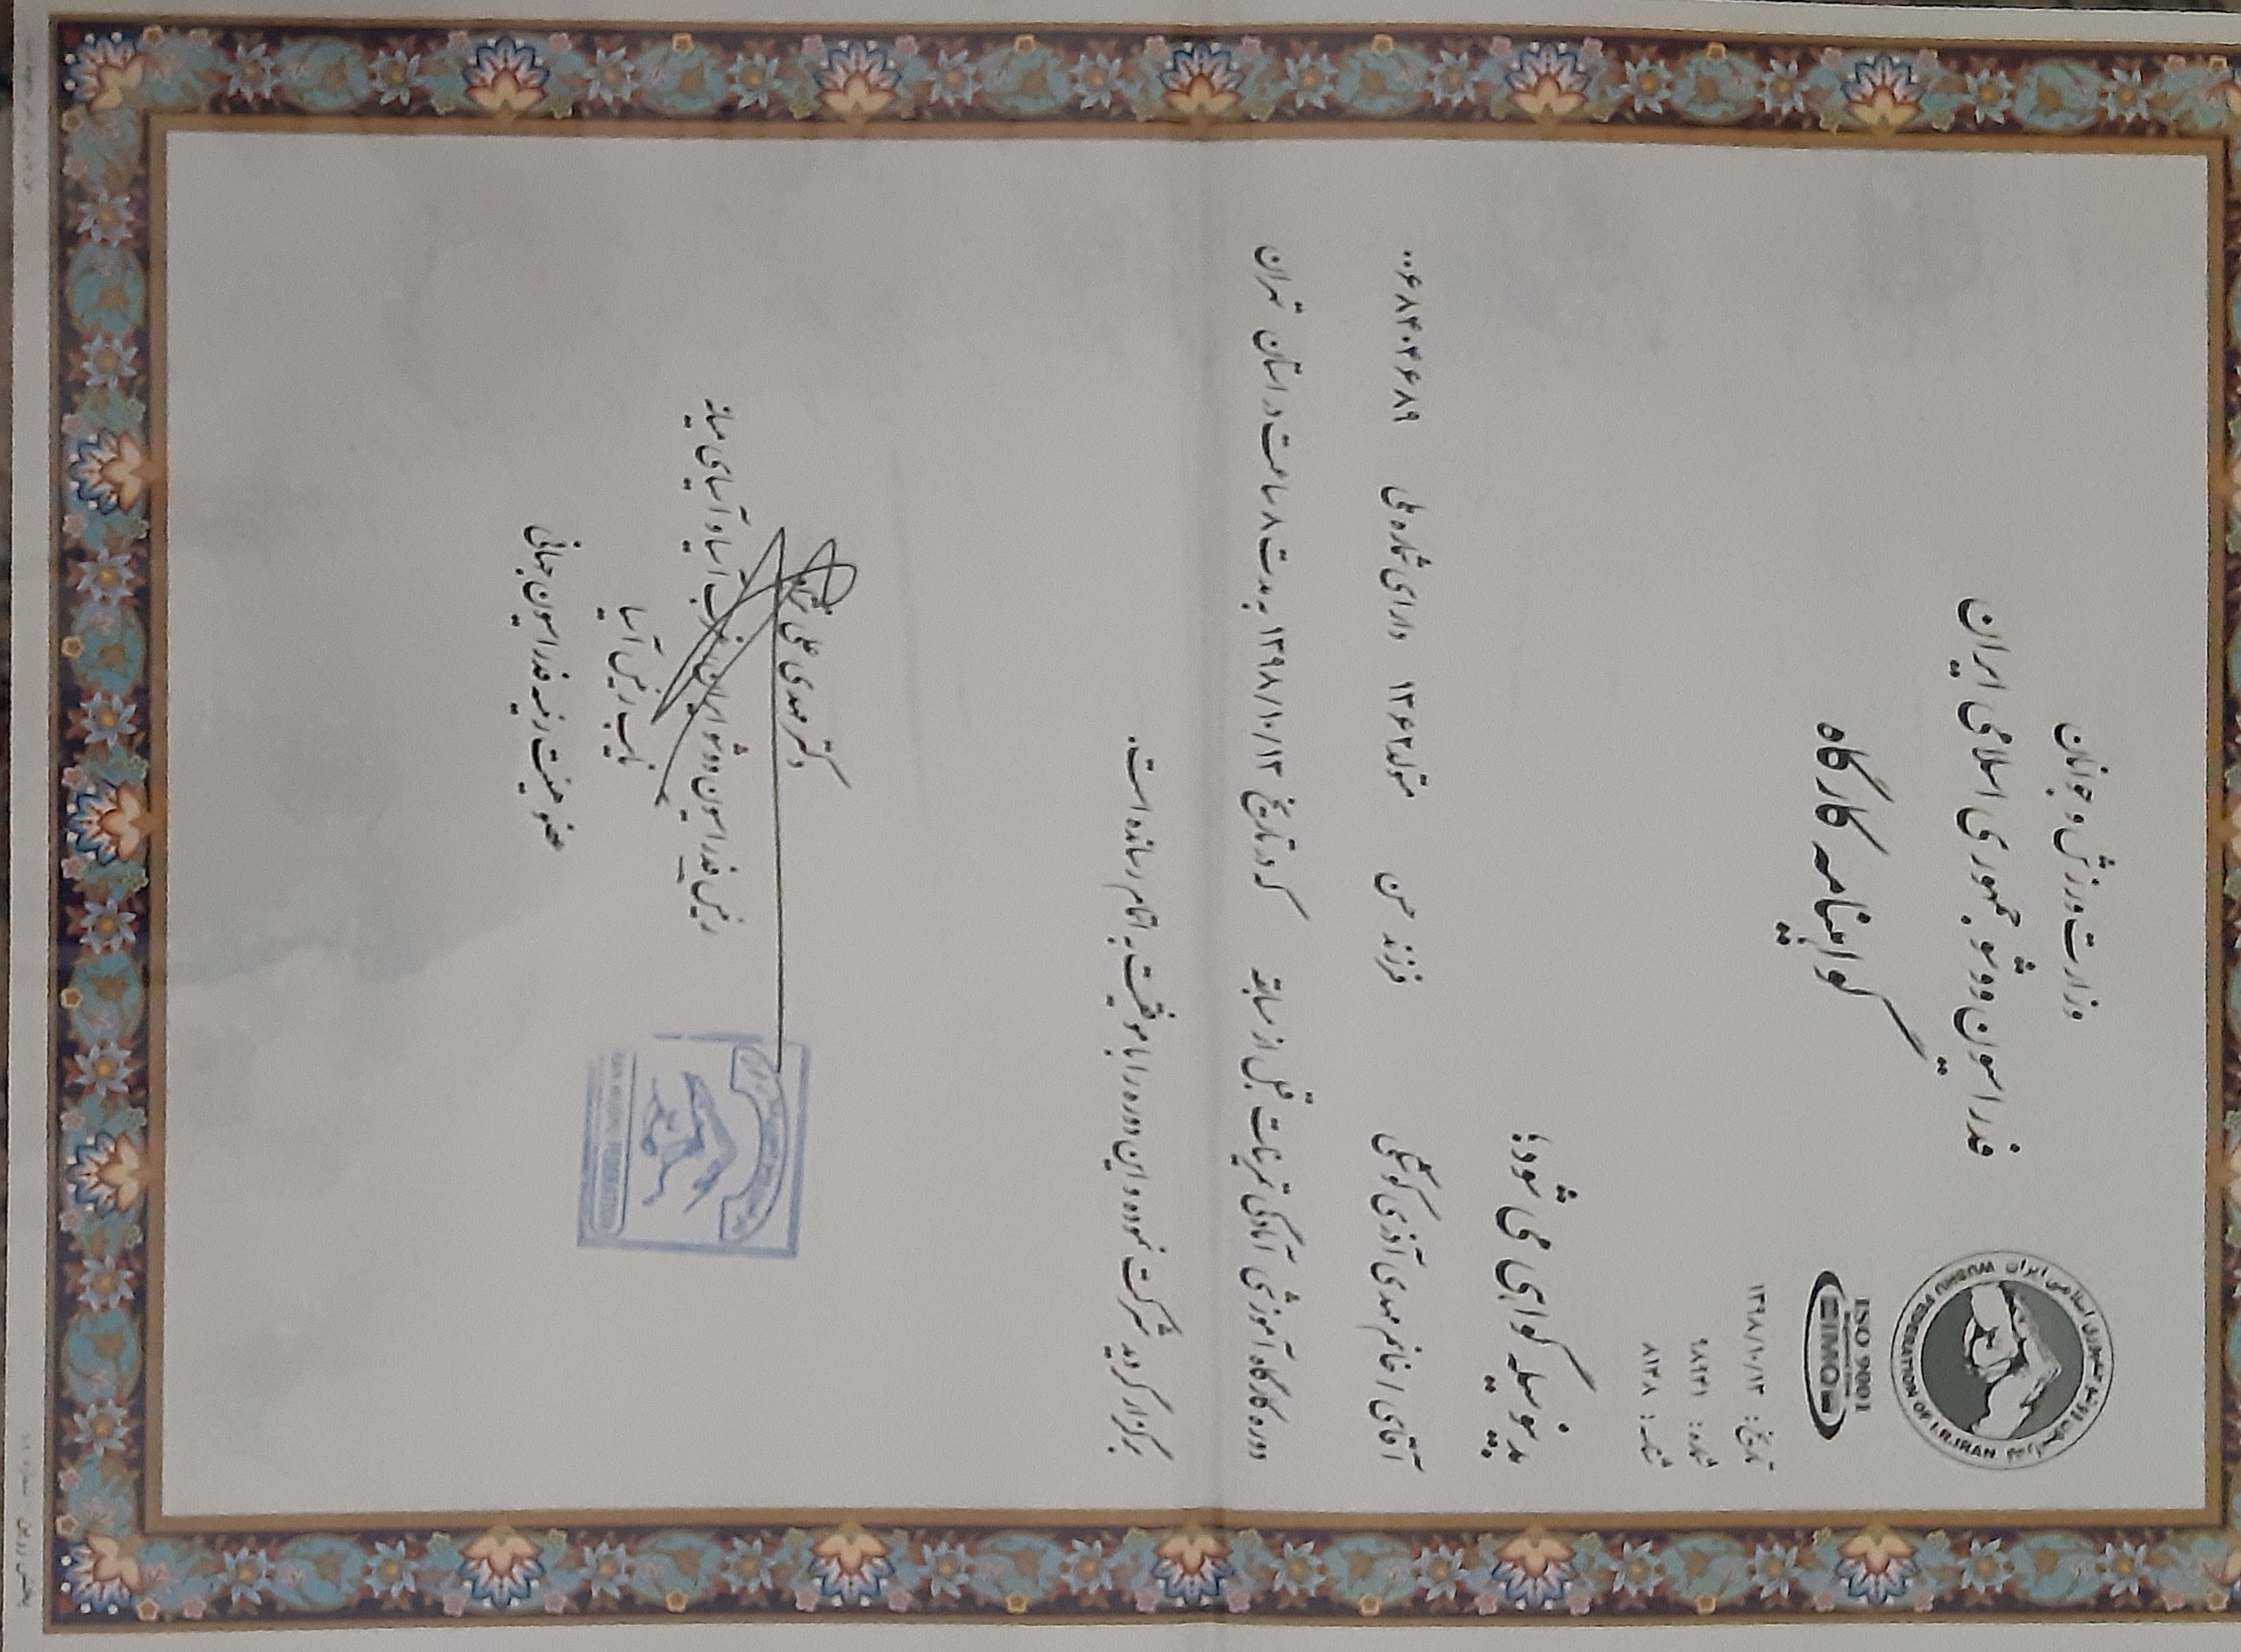 وزارت ورزش و جوانان
فدراسیون ووشو جمهوری اسلامی ایران
گواهینامه کارگاه
فدراسیون ووشو جمهوری اسلامی ایران
WUSHU FEDERATION OF I.R.IRAN
ISO 9001
IMQ
تاریخ: ۱۳۹۸/۱۰/۱۳
شماره: ۹۸۹۳۱
شبک: ۸۱۳۸
بدینوسیله گواهی می شود:
آقای / خانم مهدی آذری گونجی فرزند حسن متولد ۱۳۶۲ دارای شماره ملی ۰۰۶۸۴۰۴۶۸۹
دوره کارگاه آموزشی آمادگی تمرینات قبل از مسابقه که در تاریخ ۱۳۹۸/۱۰/۱۳ به مدت ۸ ساعت در استان تهران
برگزار گردید شرکت نموده و این دوره را با موفقیت به اتمام رسانده است.
دکتر مهدی علی نژاد
رئیس فدراسیون ووشو ایران، غرب آسیا و آسیای میانه
نایب رئیس آسیا
عضو هیئت رئیسه فدراسیون جهانی